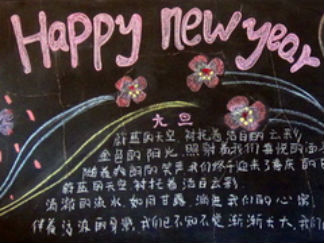 Happy new year
元旦
蔚蓝的天空 衬托着洁白的云彩
金色的阳光,照射着我们喜悦的面
随着的笑声我们终于迎来了喜庆的
蔚蓝的天空衬托着洁白云彩
清澈的流水,如同甘露,滋色我们的心
伴着的我们已不知不觉渐渐长大,我们